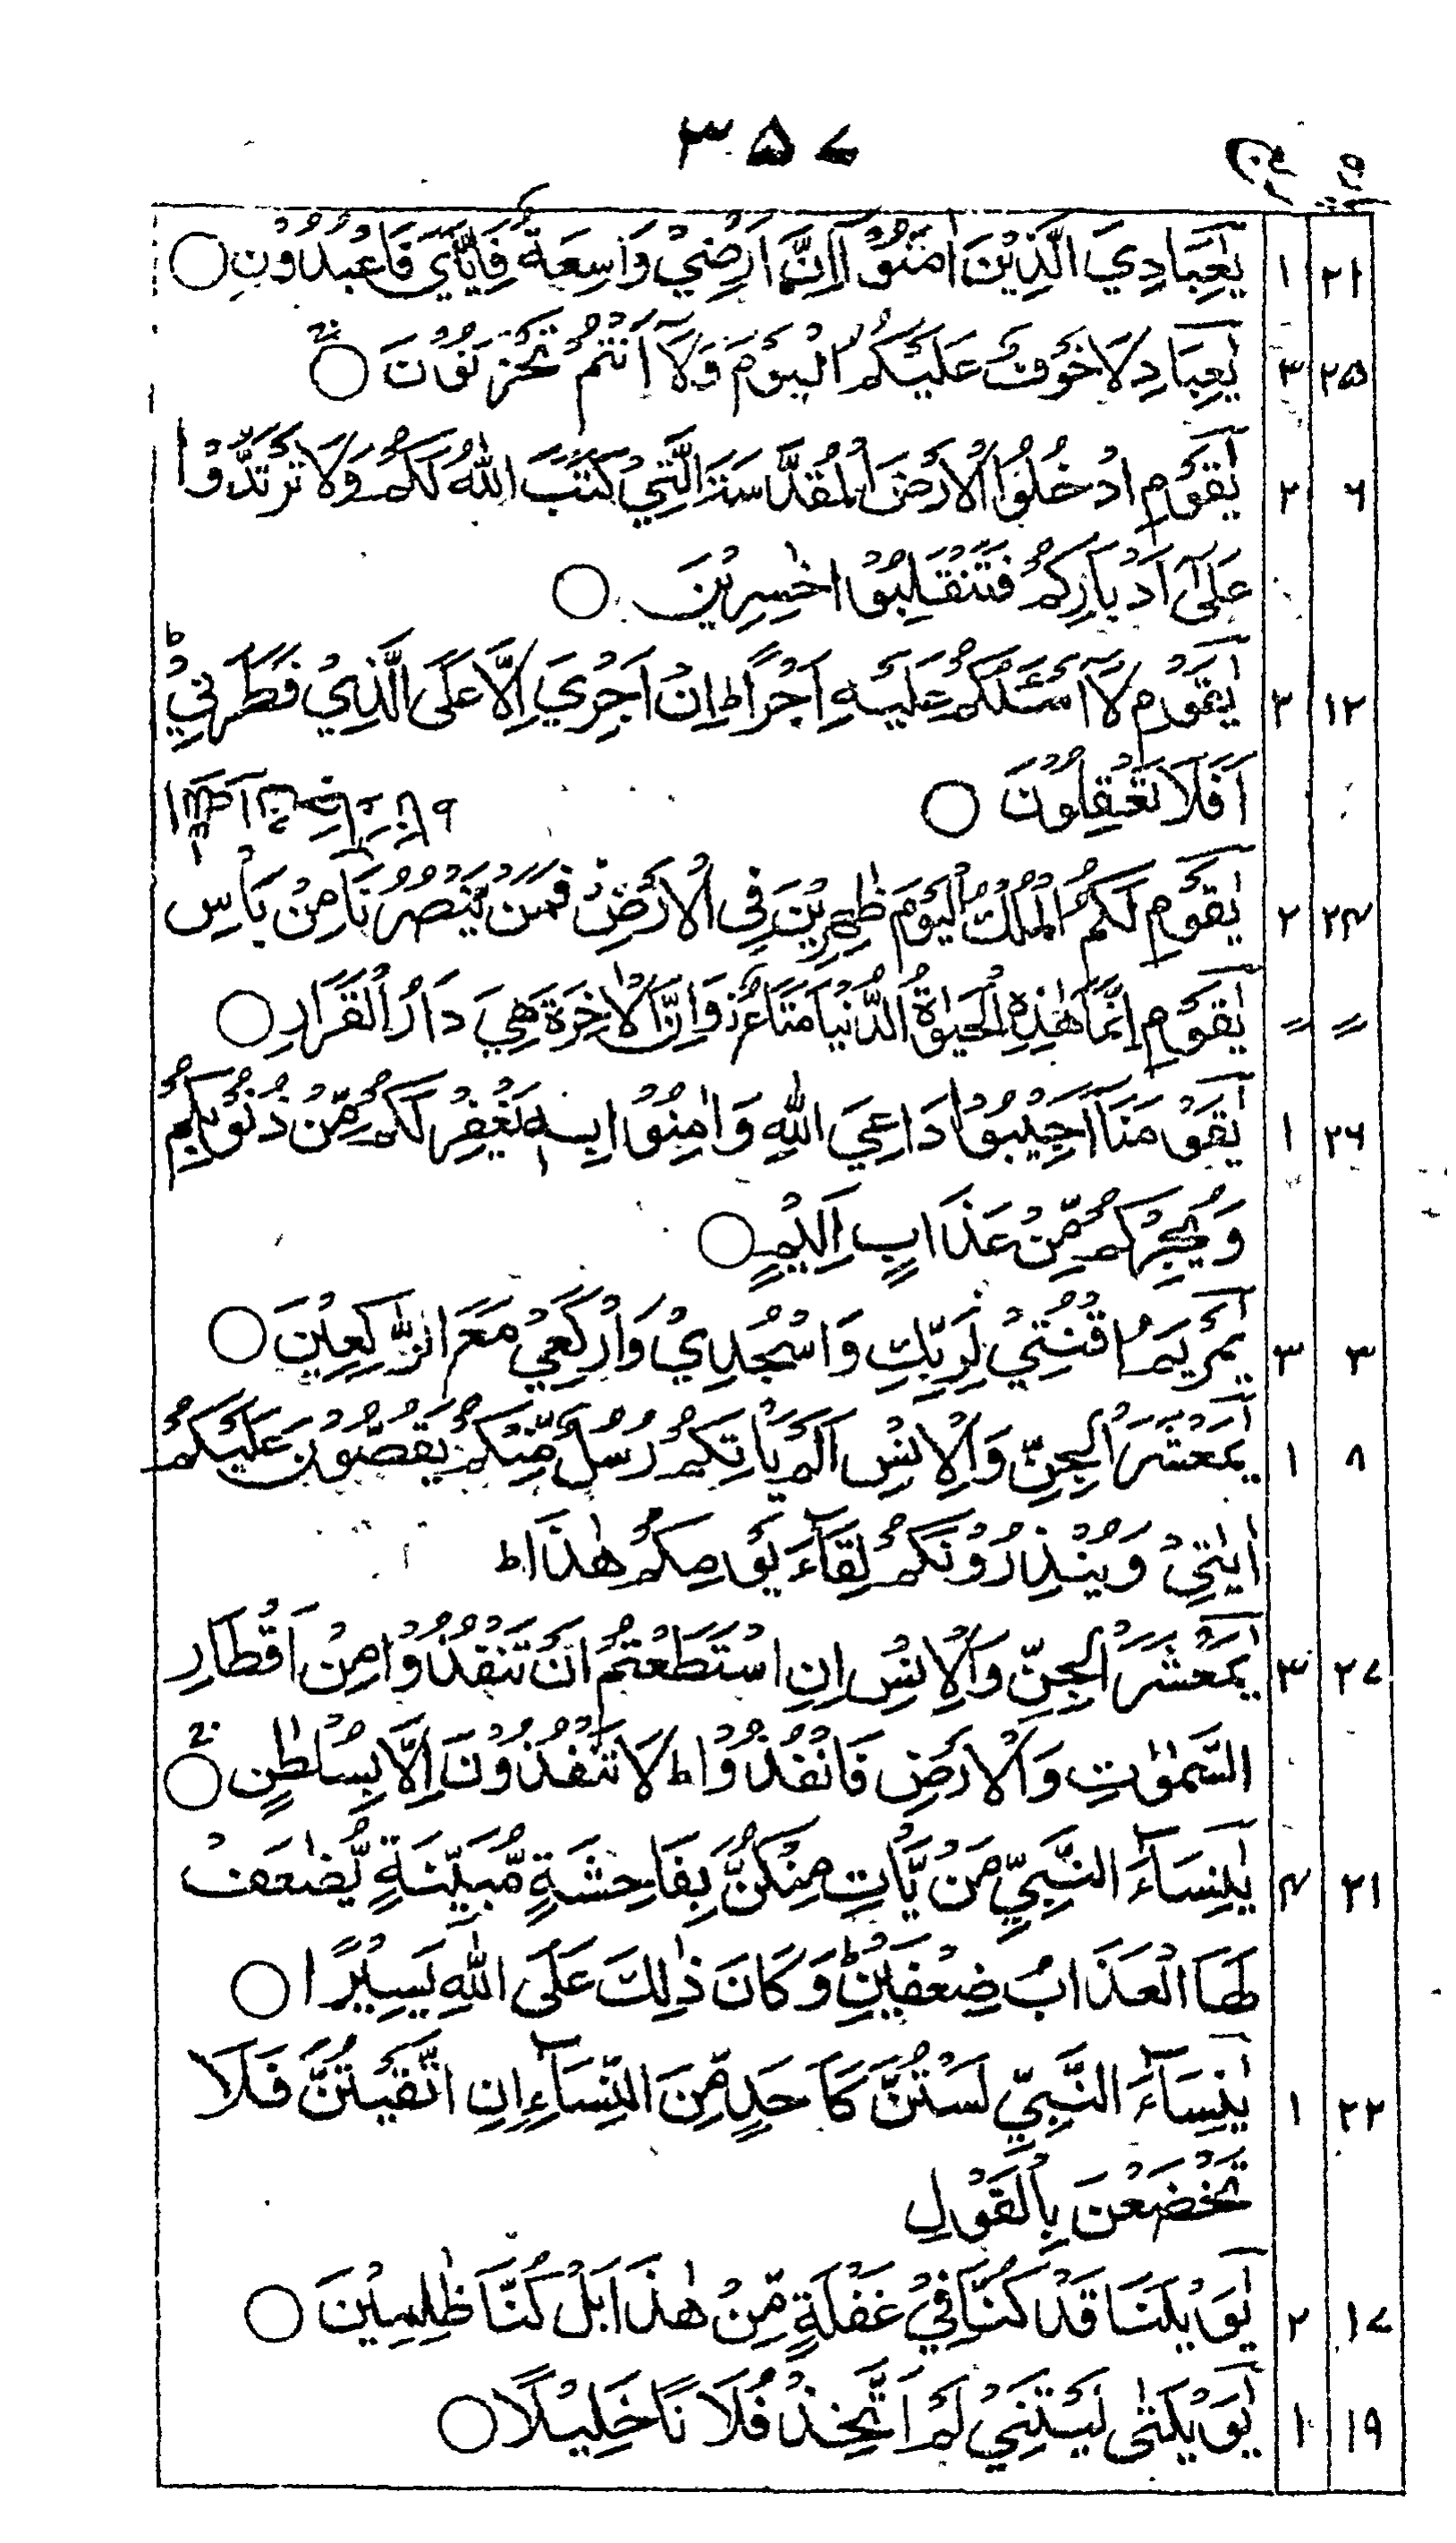 ۳۵۷
۲۱ ۱ يٰعِبَادِيَ الَّذِيْنَ اٰمَنُوْٓا اِنَّ اَرْضِيْ وَاسِعَةٌ فَاِيَّايَ فَاعْبُدُوْنِ ○
۲۵ ۳ يٰعِبَادِ لَا خَوْفٌ عَلَيْكُمُ الْيَوْمَ وَلَآ اَنْتُمْ تَحْزَنُوْنَ ○
۶ ۲ يٰقَوْمِ ادْخُلُوا الْاَرْضَ الْمُقَدَّسَةَ الَّتِيْ كَتَبَ اللّٰهُ لَكُمْ وَلَا تَرْتَدُّوْا
عَلٰٓى اَدْبَارِكُمْ فَتَنْقَلِبُوْا خٰسِرِيْنَ ○
۱۲ ۲ يٰقَوْمِ لَآ اَسْـَٔلُكُمْ عَلَيْهِ اَجْرًا ط اِنْ اَجْرِيَ اِلَّا عَلَى الَّذِيْ فَطَرَنِيْ ط
اَفَلَا تَعْقِلُوْنَ ○
۲۴ ۲ يٰقَوْمِ لَكُمُ الْمُلْكُ الْيَوْمَ ظٰهِرِيْنَ فِى الْاَرْضِ فَمَنْ يَّنْصُرُنَا مِنْ بَاْسِ
= = يٰقَوْمِ اِنَّمَا هٰذِهِ الْحَيٰوةُ الدُّنْيَا مَتَاعٌ وَاِنَّ الْاٰخِرَةَ هِيَ دَارُ الْقَرَارِ ○
۲۶ ۱ يٰقَوْمَنَآ اَجِيْبُوْا دَاعِيَ اللّٰهِ وَاٰمِنُوْا بِهٖ يَغْفِرْ لَكُمْ مِّنْ ذُنُوْبِكُمْ
وَيُجِرْكُمْ مِّنْ عَذَابٍ اَلِيْمٍ ○
۳ ۳ يٰمَرْيَمُ اقْنُتِيْ لِرَبِّكِ وَاسْجُدِيْ وَارْكَعِيْ مَعَ الرّٰكِعِيْنَ ○
۸ ۱ يٰمَعْشَرَ الْجِنِّ وَالْاِنْسِ اَلَمْ يَاْتِكُمْ رُسُلٌ مِّنْكُمْ يَقُصُّوْنَ عَلَيْكُمْ
اٰيٰتِيْ وَيُنْذِرُوْنَكُمْ لِقَآءَ يَوْمِكُمْ هٰذَا ط
۲۷ ۳ يٰمَعْشَرَ الْجِنِّ وَالْاِنْسِ اِنِ اسْتَطَعْتُمْ اَنْ تَنْفُذُوْا مِنْ اَقْطَارِ
السَّمٰوٰتِ وَالْاَرْضِ فَانْفُذُوْا ط لَا تَنْفُذُوْنَ اِلَّا بِسُلْطٰنٍ ○
۲۱ ۴ يٰنِسَآءَ النَّبِيِّ مَنْ يَّاْتِ مِنْكُنَّ بِفَاحِشَةٍ مُّبَيِّنَةٍ يُّضٰعَفْ
لَهَا الْعَذَابُ ضِعْفَيْنِ ط وَكَانَ ذٰلِكَ عَلَى اللّٰهِ يَسِيْرًا ○
۲۲ ۱ يٰنِسَآءَ النَّبِيِّ لَسْتُنَّ كَاَحَدٍ مِّنَ النِّسَآءِ اِنِ اتَّقَيْتُنَّ فَلَا
تَخْضَعْنَ بِالْقَوْلِ
۱۷ ۲ يٰوَيْلَنَا قَدْ كُنَّا فِيْ غَفْلَةٍ مِّنْ هٰذَا بَلْ كُنَّا ظٰلِمِيْنَ ○
۱۹ ۱ يٰوَيْلَتٰى لَيْتَنِيْ لَمْ اَتَّخِذْ فُلَانًا خَلِيْلًا ○